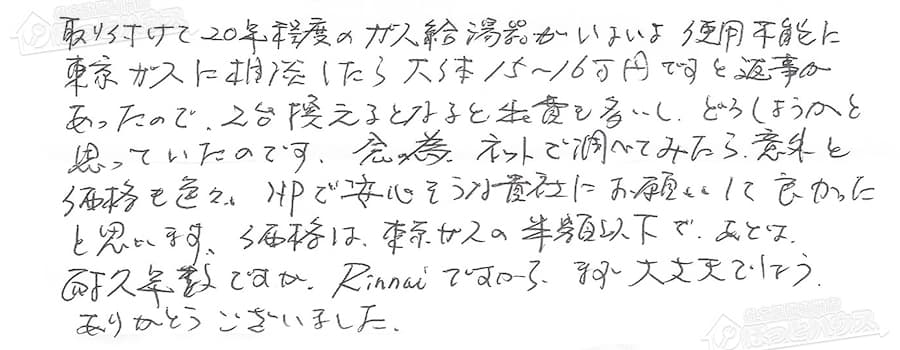 取り付けて20年程度のガス給湯器がいよいよ使用不能に
東京ガスに相談したら大体15〜16万円ですと返事が
あったので、2台換えるとなると出費も多いし、どうしようかと
思っていたのです、念の為、ネットで調べてみたら、意外と
価格も色々。HPで安心そうな貴社にお願いして良かった
と思います、価格は、東京ガスの半額以下で、あとは、
耐久年数ですが、Rinnaiですから、まず大丈夫でしょう。
ありがとうございました。